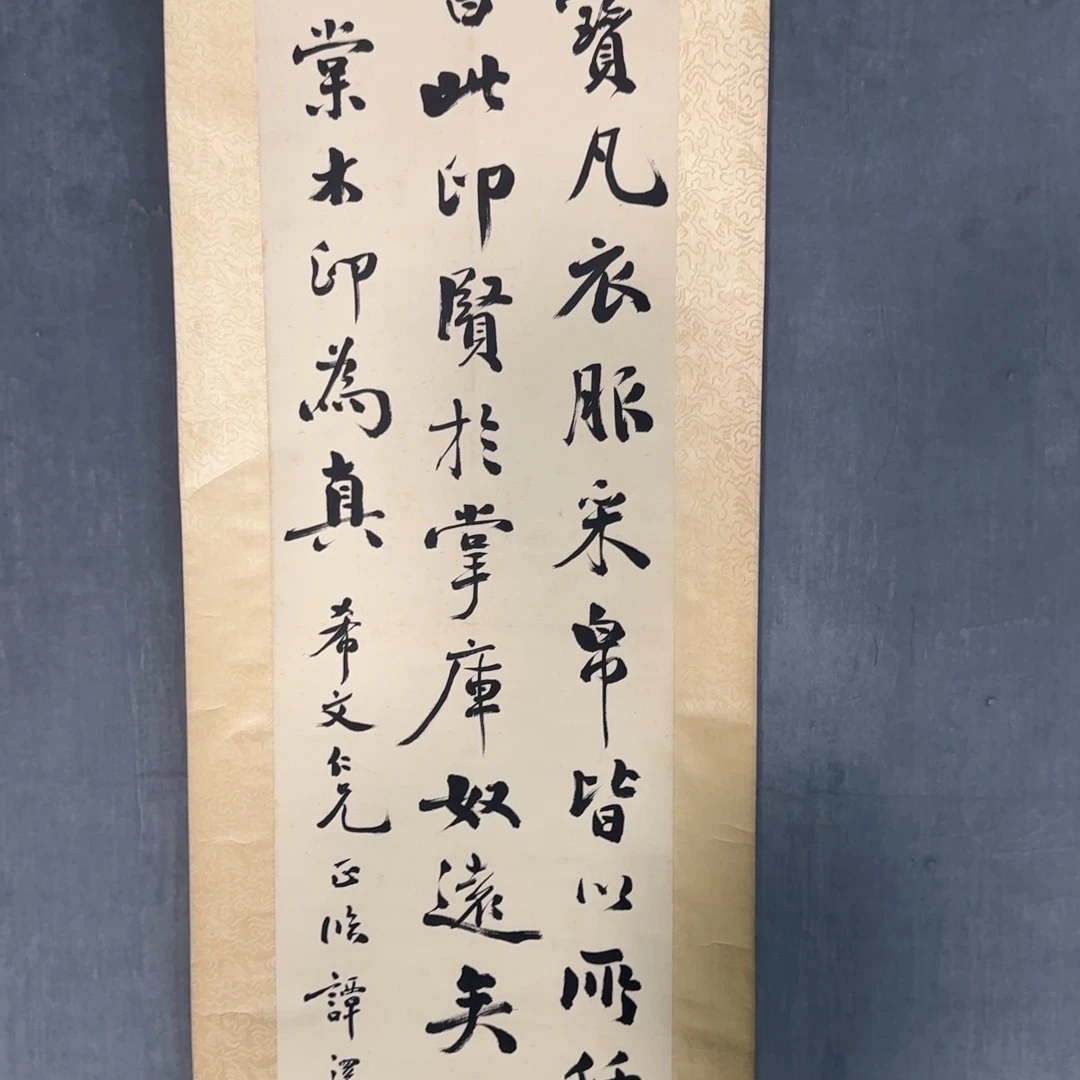 寶凡衣服采帛皆以所
曰此印賢於掌庫奴遠矣
棠木印為真 希文仁兄 正腕 譚澤